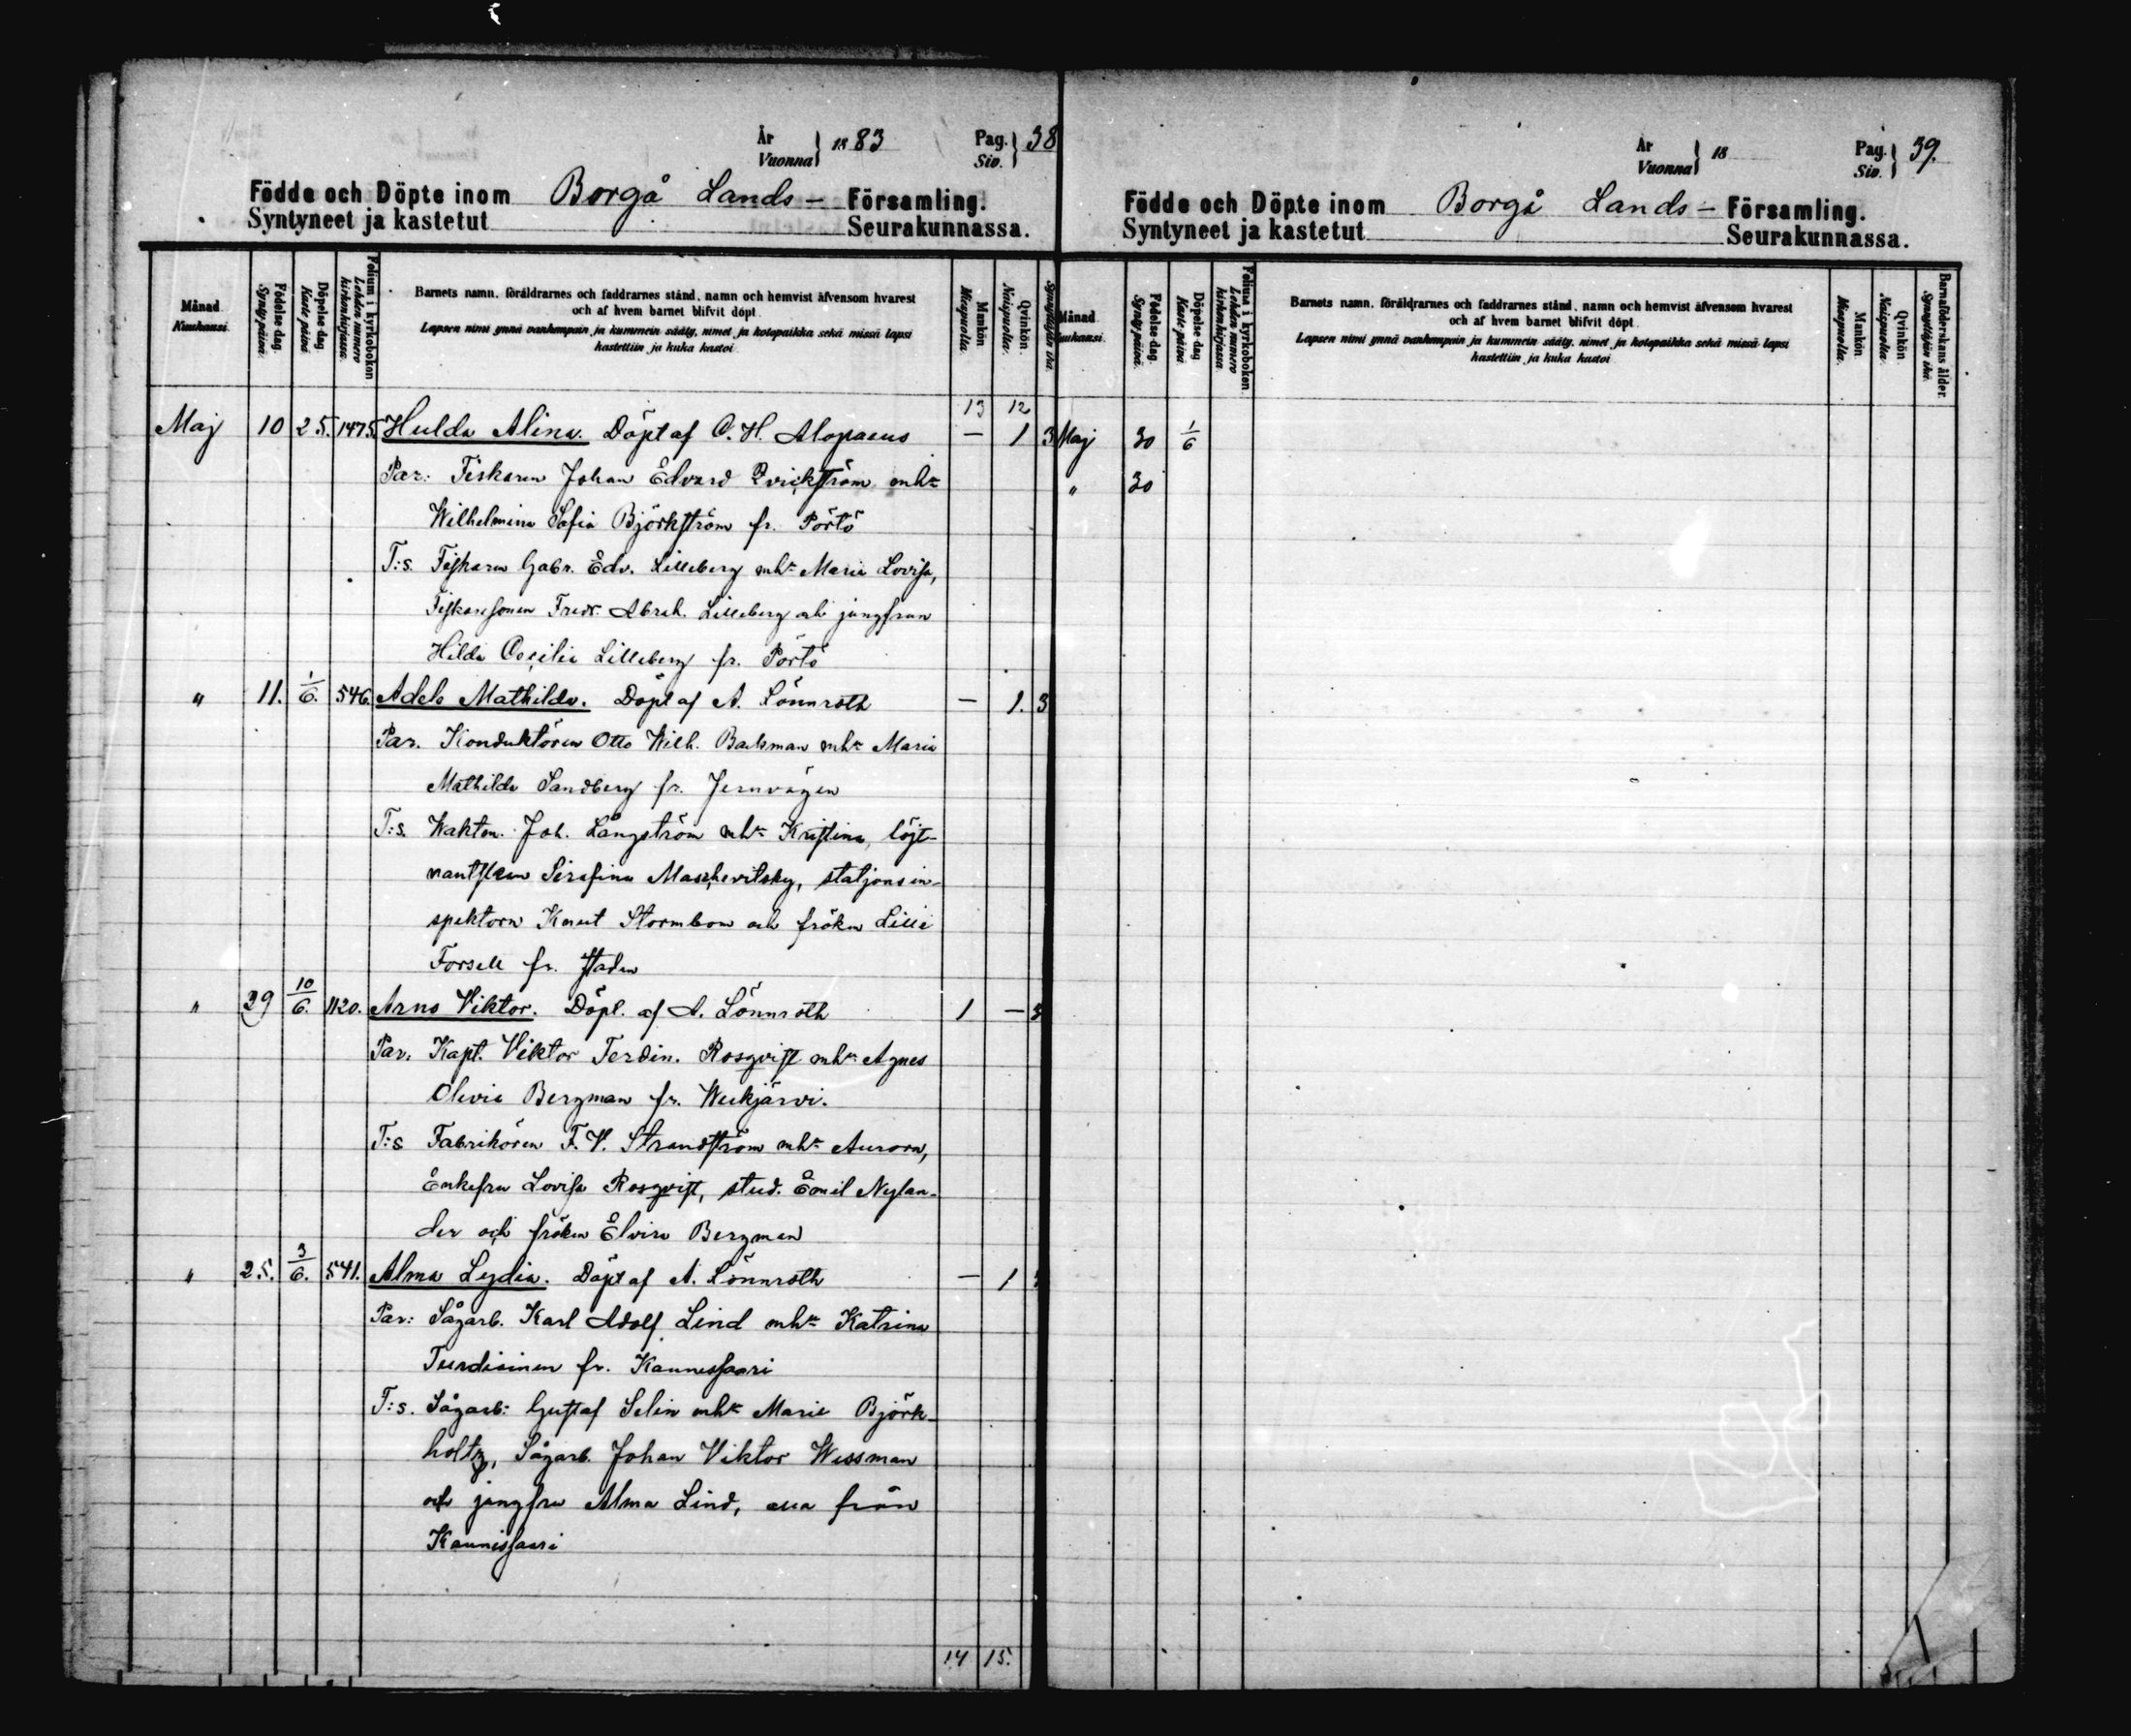 År
Vuonna } 1883 Pag.
Siv. } 38
Födde och Döpte inom Borgå Lands- Församling.
Syntyneet ja kastetut Seurakunnassa.
Månad
Kuukausi.
Födelse-dag.
Syntypäivä.
Döpelse-dag
Kaste päivä.
Folium i kyrkoboken
Lehden numero
kirkonkirjassa.
Barnets namn, föräldrarnes och faddrarnes stånd, namn och hemvist äfvensom hvarest
och af hvem barnet blifvit döpt.
Lapsen nimi ynnä vanhempain ja kummein sääty, nimet ja kotopaikka sekä missä lapsi
kastettiin ja kuka kastoi.
Mankön
Miespuolia.
Qvinkön.
Naispuolia.
13 12
Maj 10 25. 1475 Hulda Alina. Döpt af C. H. Alopaeus — 1 3
Par: Fiskaren Johan Edvard Qvickström mhu
Wilhelmina Sofia Björkström fr. Pörtö
T:s. Fiskaren Gabr. Edv. Lilleberg mhu Maria Lovisa,
Fiskaresonen Fredr. Abrah. Lilleberg och jungfrun
Hilda Cecilia Lilleberg fr. Pörtö
" 11. 1/6. 546. Adele Mathilda. Döpt af A. Lönnroth — 1. 3
Par. Konduktören Otto Wilh. Backman mhu Maria
Mathilda Sandberg fr. Jernvägen
T:s. Wakten Joh. Långström mhu Kristina, löjt-
nantskan Serafina Maschevitsky, statjonsin-
spektorn Knut Stormbom och fröken Lilli
Forsell fr. staden
" 29 10/6. 1120. Arno Viktor. Döpt. af A. Lönnroth 1 — 3
Par. Kapt. Viktor Ferdin. Rosqvist mhu Agnes
Olivia Bergman fr. Weckjärvi.
T:s Fabrikören F. V. Strandström mhu Aurora,
Enkefru Lovisa Rosqvist, stud. Emil Nylan-
der och fröken Elvira Bergman
" 25. 3/6. 541. Alma Lydia. Döpt af A. Lönnroth — 1
Par: Sågarb. Karl Adolf Lind mhu Katrina
Turdiainen fr. Kaunissaari
T:s. Sågarb: Gustaf Selin mhu Maria Björk-
holtz, Sågarb. Johan Viktor Wessman
och jungfru Alma Lind, alla från
Kaunissaari
14 15.
År
Vuonna } 18 Pag.
Siv. } 39.
Födde och Döpte inom Borgå Lands- Församling.
Syntyneet ja kastetut Seurakunnassa.
Månad
Kuukausi.
Födelse-dag.
Syntypäivä.
Döpelse-dag
Kaste päivä.
Folium i kyrkoboken.
Lehden numero
kirkonkirjassa.
Barnets namn, föräldrarnes och faddrarnes stånd, namn och hemvist äfvensom hvarest
och af hvem barnet blifvit döpt.
Lapsen nimi ynnä vanhempain ja kummein sääty, nimet ja kotopaikka sekä missä lapsi
kastettiin ja kuka kastoi.
Mankön
Miespuolia.
Qvinkön.
Naispuolia.
Barnaföderskans ålder.
Synnyttäjän ikä.
Maj 30 1/6
" 30